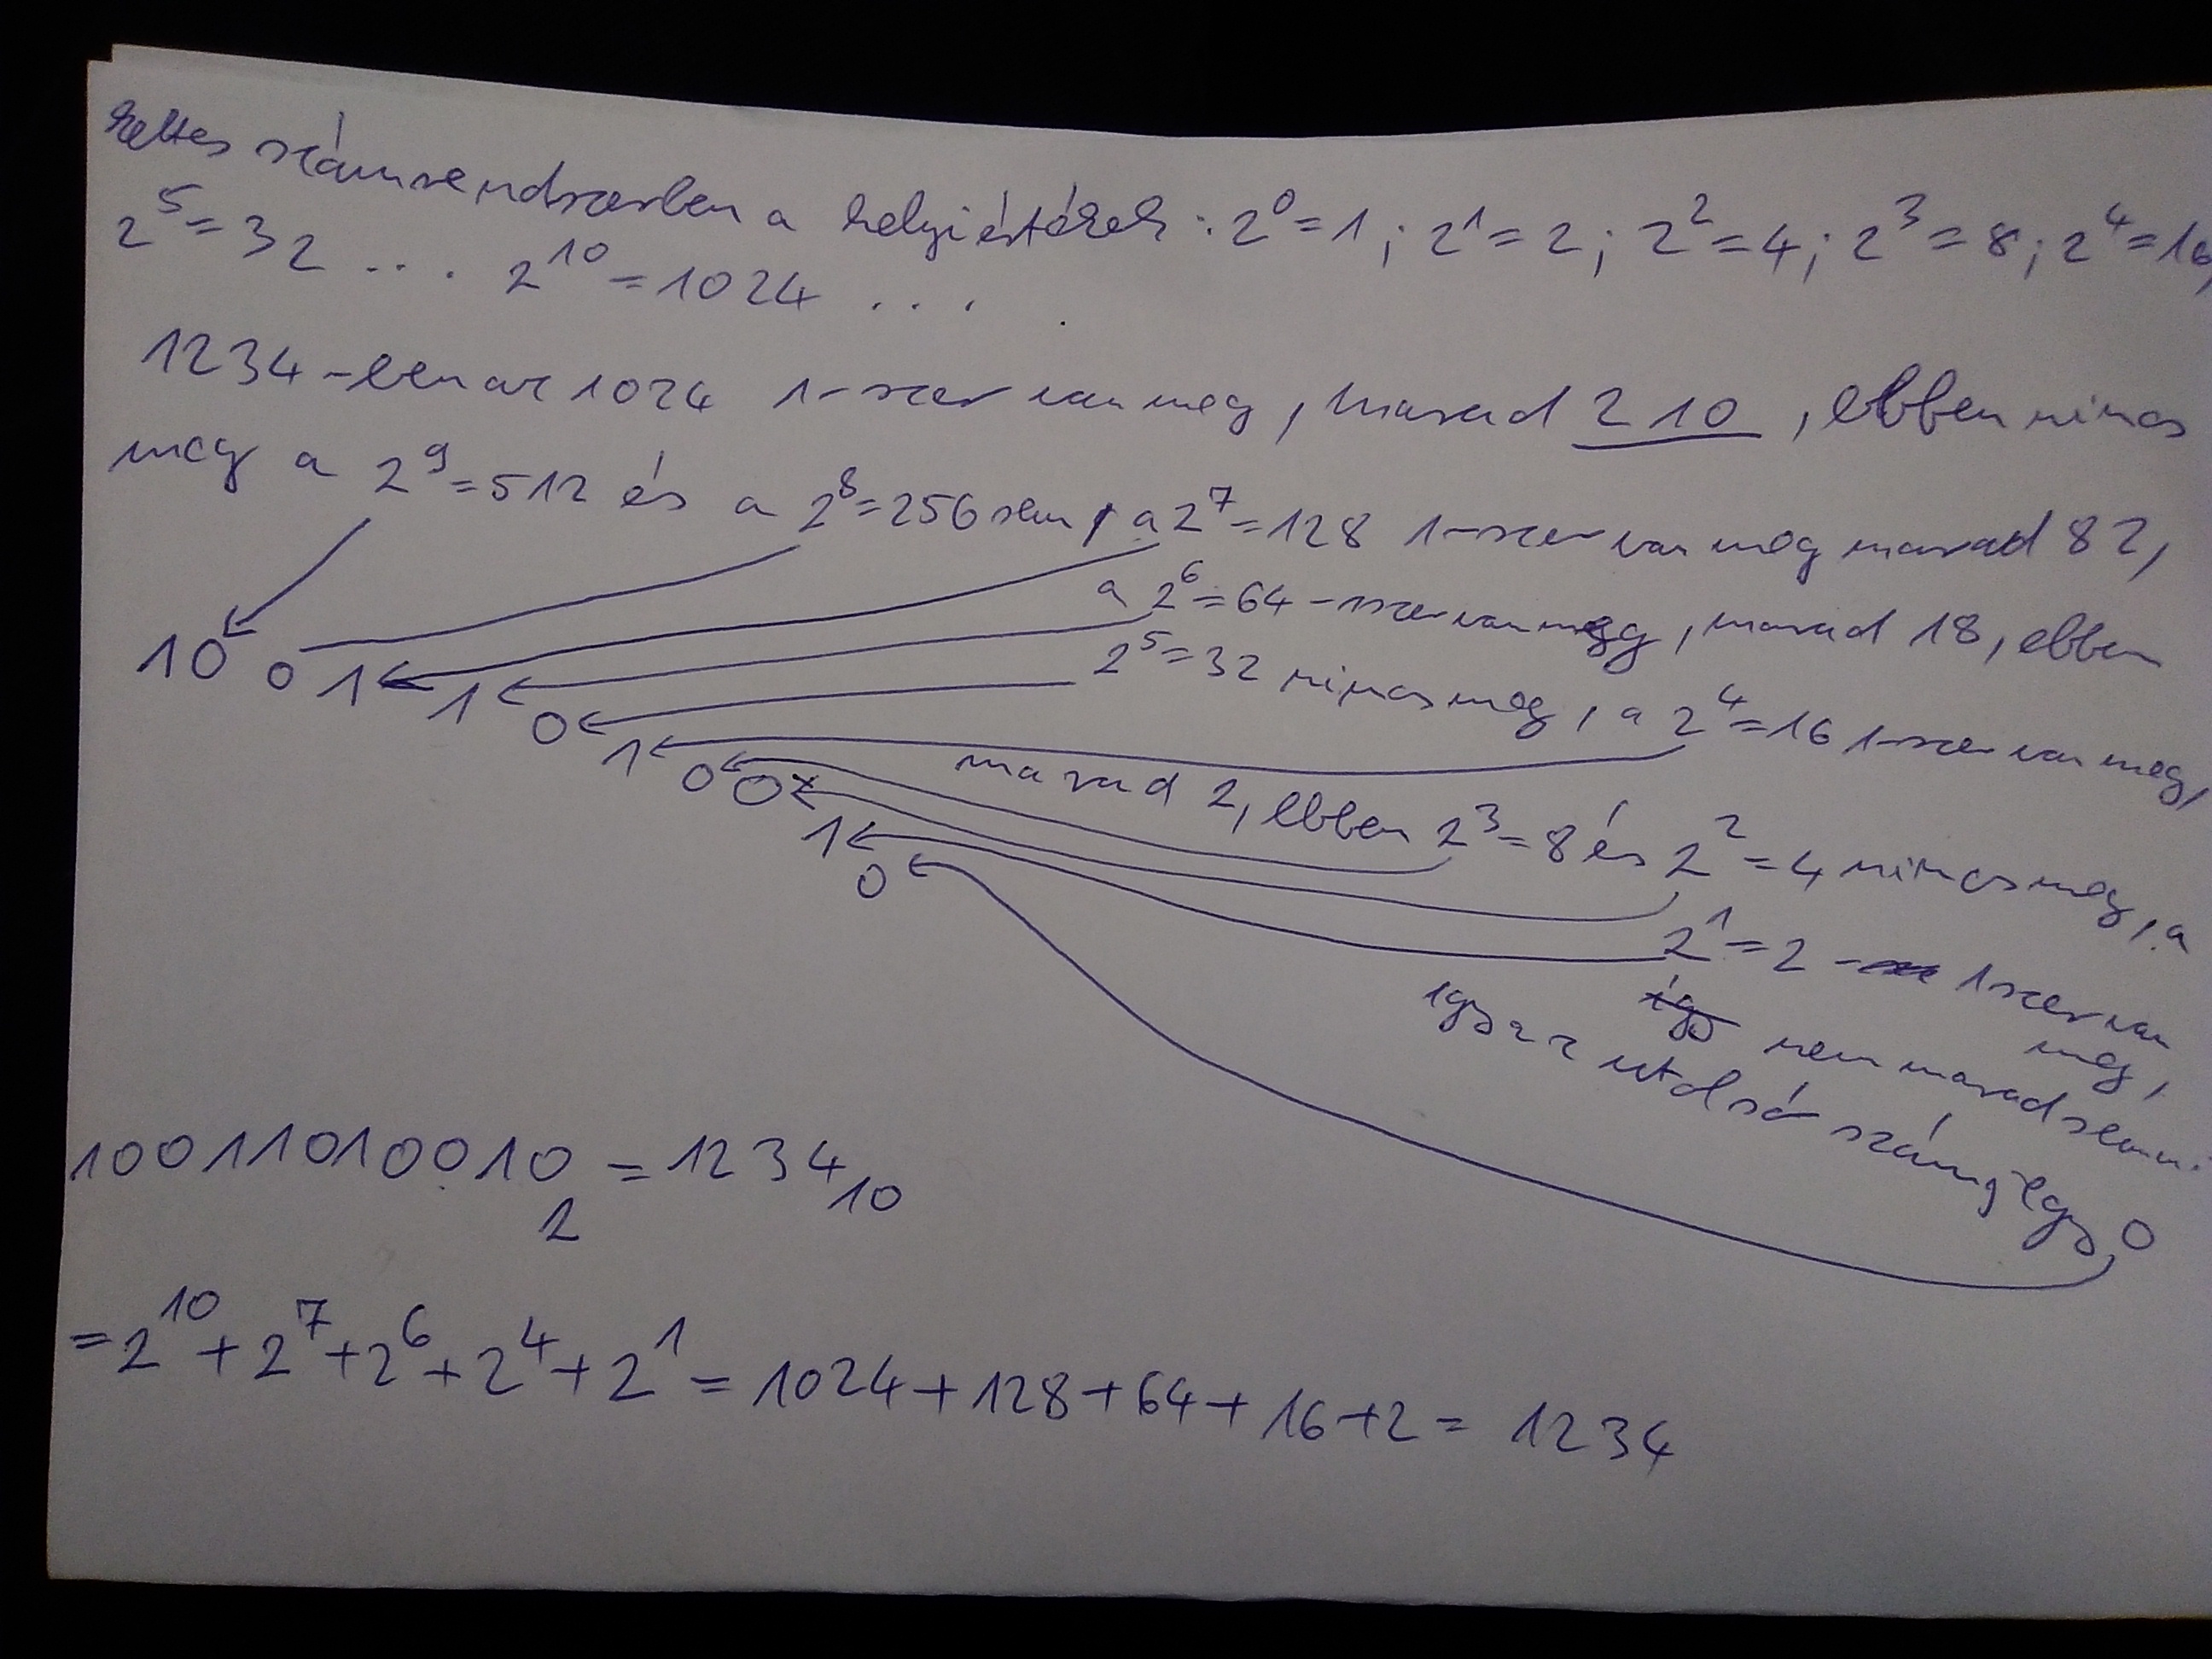 kettes számrendszerben a helyiértékek: 2^0=1; 2^1=2; 2^2=4; 2^3=8; 2^4=16,
2^5=32 ... 2^10=1024 ...
1234-ben az 1024 1-szer van meg, marad 210, ebben nincs
meg a 2^9=512 és a 2^8=256 sem, a 2^7=128 1-szer van meg marad 82,
a 2^6=64-szer van meg, marad 18, ebben
2^5=32 nincs meg, a 2^4=16 1-szer van meg,
marad 2, ebben 2^3=8 és 2^2=4 nincs meg, a
2^1=2 - 1szer van
meg,
nem marad semmi
így az utolsó szám, egy 0
10011010010
1001101 0010_2 = 1234_10
=2^10+2^7+2^6+2^4+2^1=1024+128+64+16+2=1234